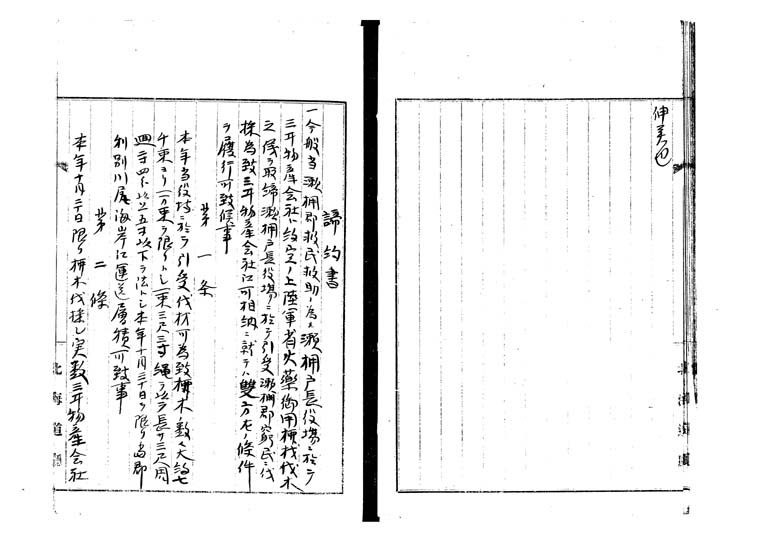 伸義也
諦約書
一今般当瀬棚郡救民救助ノ為メ瀬棚戸長役場ニ於テ
三井物産会社ト約定ノ上陸軍省火薬御用柳材伐木
之儀ヲ取締瀬棚戸長役場ニ於テ引受瀬棚郡窮民ニ伐
採為致三井物産会社江可相納ニ就テハ雙方左ノ條件
ヲ履行可致候事
第一条
本年当役場ニ於テ引受伐材可為致柳木ノ数ハ大約七
千束ヨリ一万束ヲ限リトシ一束三尺三寸縄ヲ以テ長サ三尺周
四寸以上五寸以下ヲ法トシ本年十月三十日ヲ限リ当郡
利別川尾海岸江運送層積可致事
第二條
本年十月三日限リ柳木伐採シ実数三井物産会社
北海道